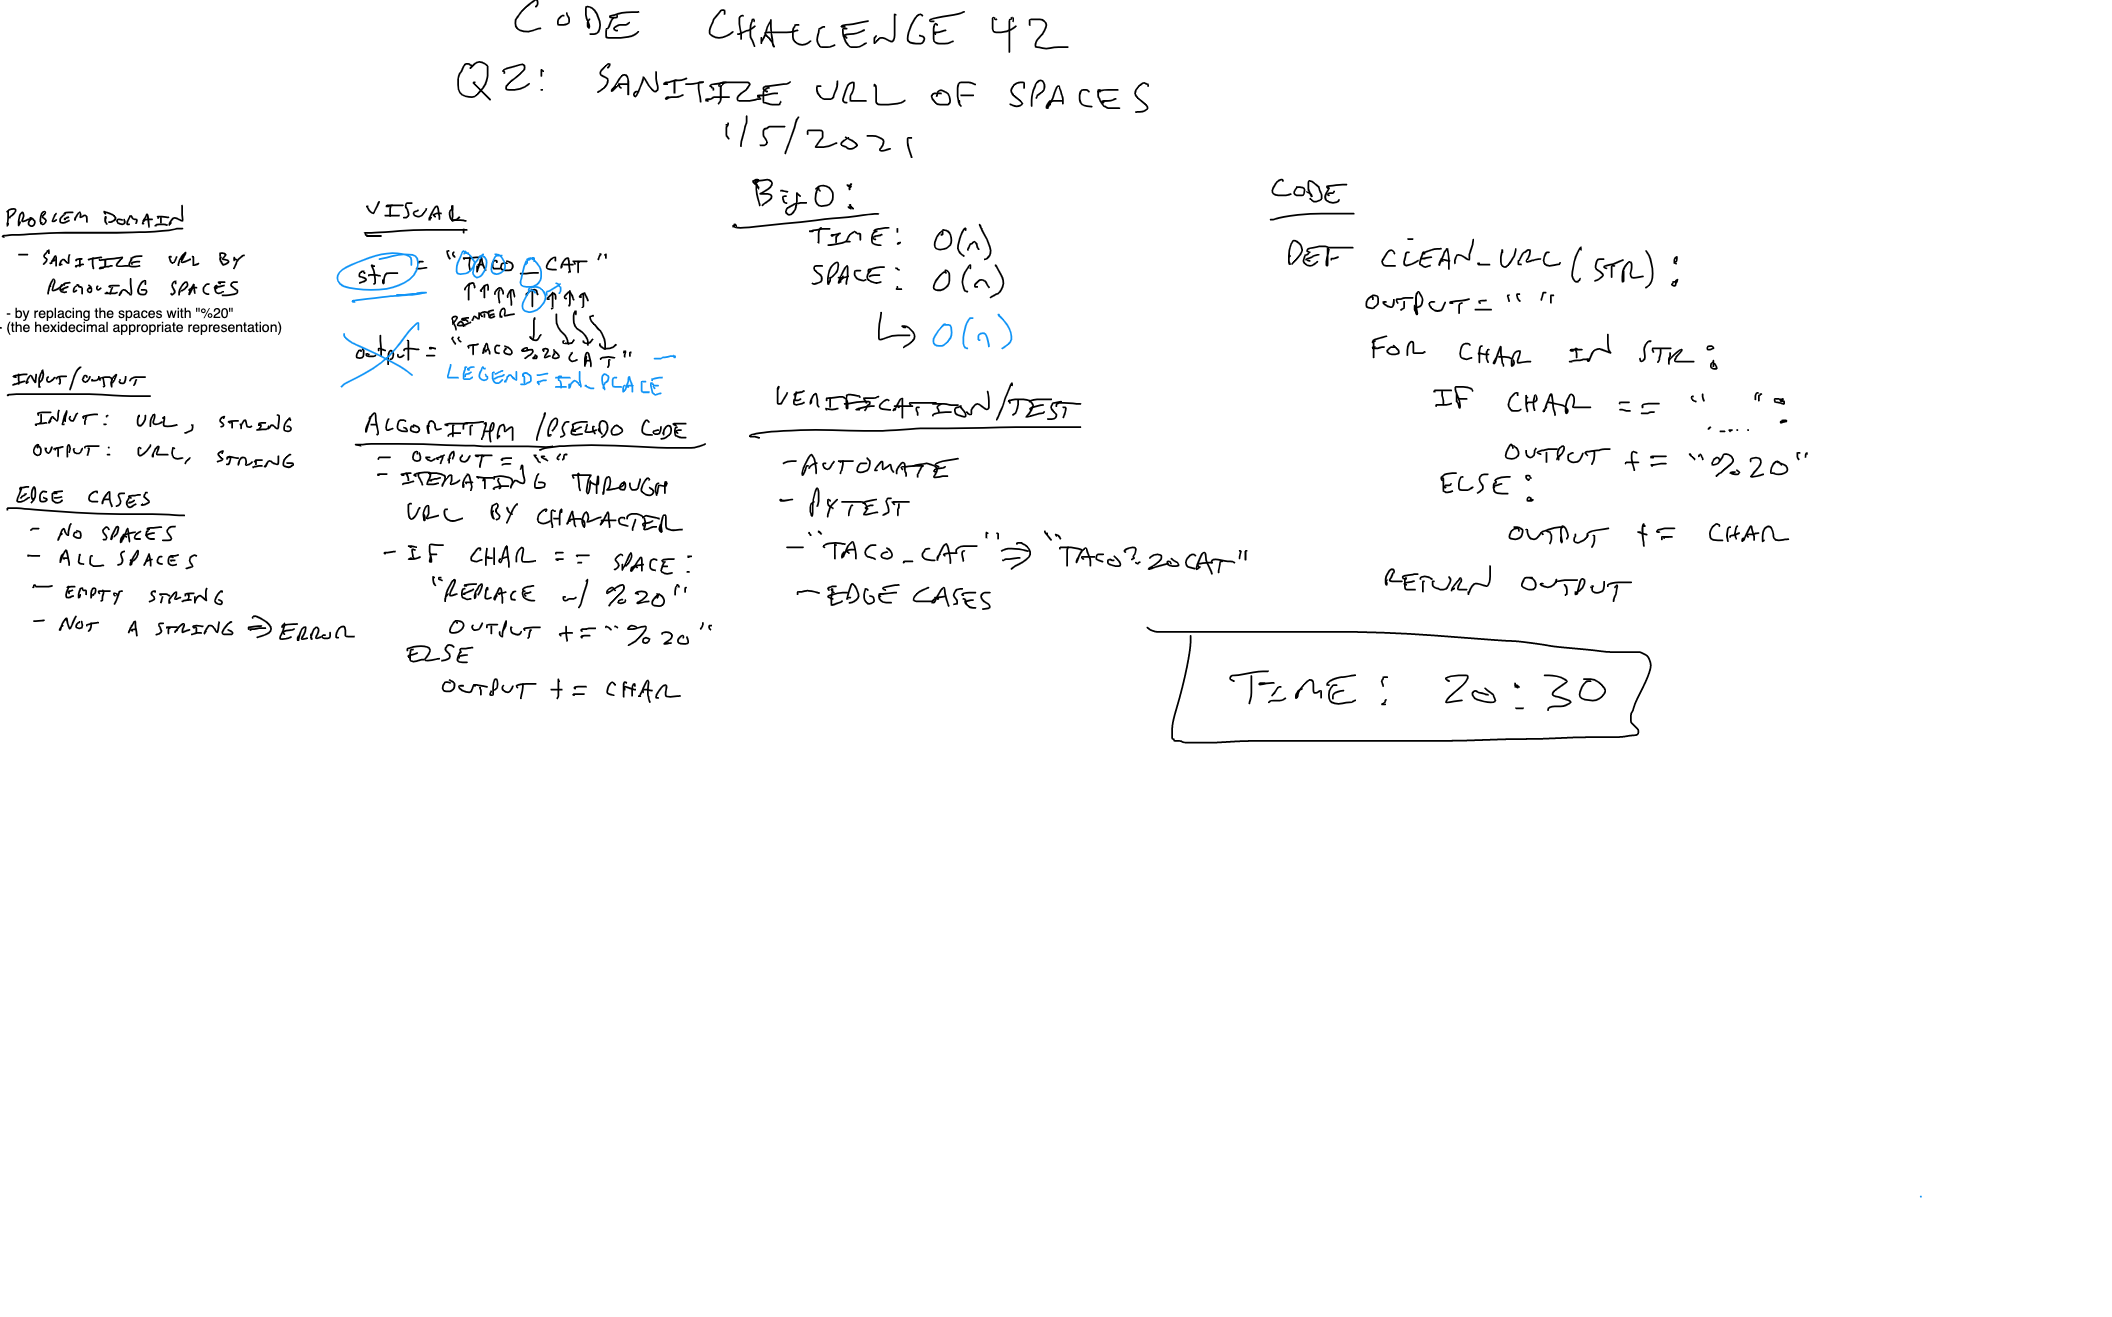 CODE CHALLENGE 42
Q2: SANITIZE URL OF SPACES
1/5/2021
PROBLEM DOMAIN
- SANITIZE URL BY
REMOVING SPACES
- by replacing the spaces with "%20"
- (the hexidecimal appropriate representation)
INPUT/OUTPUT
INPUT: URL, STRING
OUTPUT: URL, STRING
EDGE CASES
- NO SPACES
- ALL SPACES
- EMPTY STRING
- NOT A STRING => ERROR
VISUAL
str = "TACO_CAT"
↑↑↑↑ ↑ ↑↑↑
POINTER ↓ ↓↓↓
output = "TACO%20CAT"
LEGEND = IN_PLACE
ALGORITHM / PSEUDO CODE
- OUTPUT = ""
- ITERATING THROUGH
URL BY CHARACTER
- IF CHAR == SPACE:
"REPLACE w/ %20"
OUTPUT += "%20"
ELSE
OUTPUT += CHAR
Big O:
TIME: O(n)
SPACE: O(n)
↳ O(n)
VERIFICATION/TEST
- AUTOMATE
- PYTEST
- "TACO_CAT" => "TACO%20CAT"
- EDGE CASES
CODE
DEF CLEAN_URL(STR):
OUTPUT = " "
FOR CHAR IN STR:
IF CHAR == " ":
OUTPUT += "%20"
ELSE:
OUTPUT += CHAR
RETURN OUTPUT
TIME: 20:30